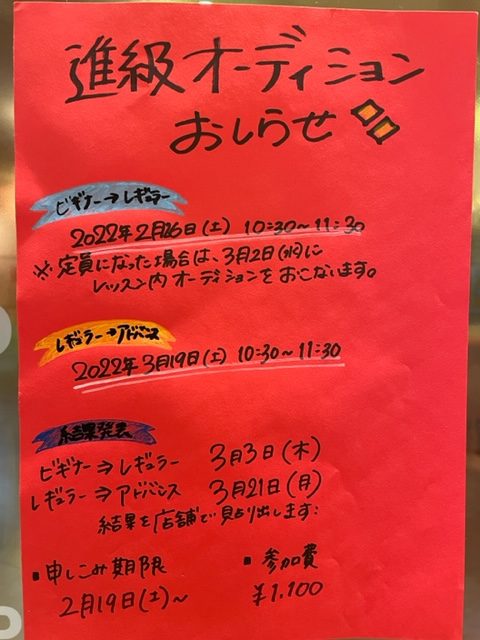 進級オーディション
おしらせ
ビギナー→レギュラー
2022年2月26日(土) 10:30~11:30
※定員になった場合は、3月2日(水)に
レッスン内オーディションをおこないます。
レギュラー→アドバンス
2022年3月19日(土) 10:30~11:30
結果発表
ビギナー⇒レギュラー 3月3日(木)
レギュラー⇒アドバンス 3月21日(月)
結果を店舗で貼り出します:
▪申しこみ期限 ▪参加費
2月19日(土)~ ¥1,100